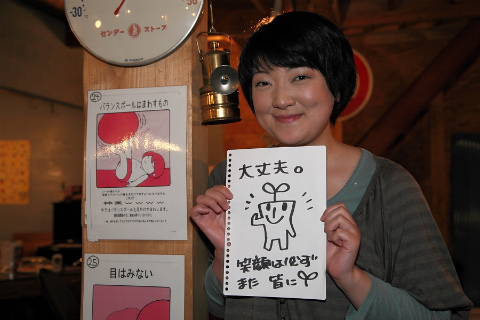 -30℃
30℃
センダー ストーブ
24
バランスボールはまわすもの
25
目はみない
大丈夫。
笑顔は必ず
また 皆に